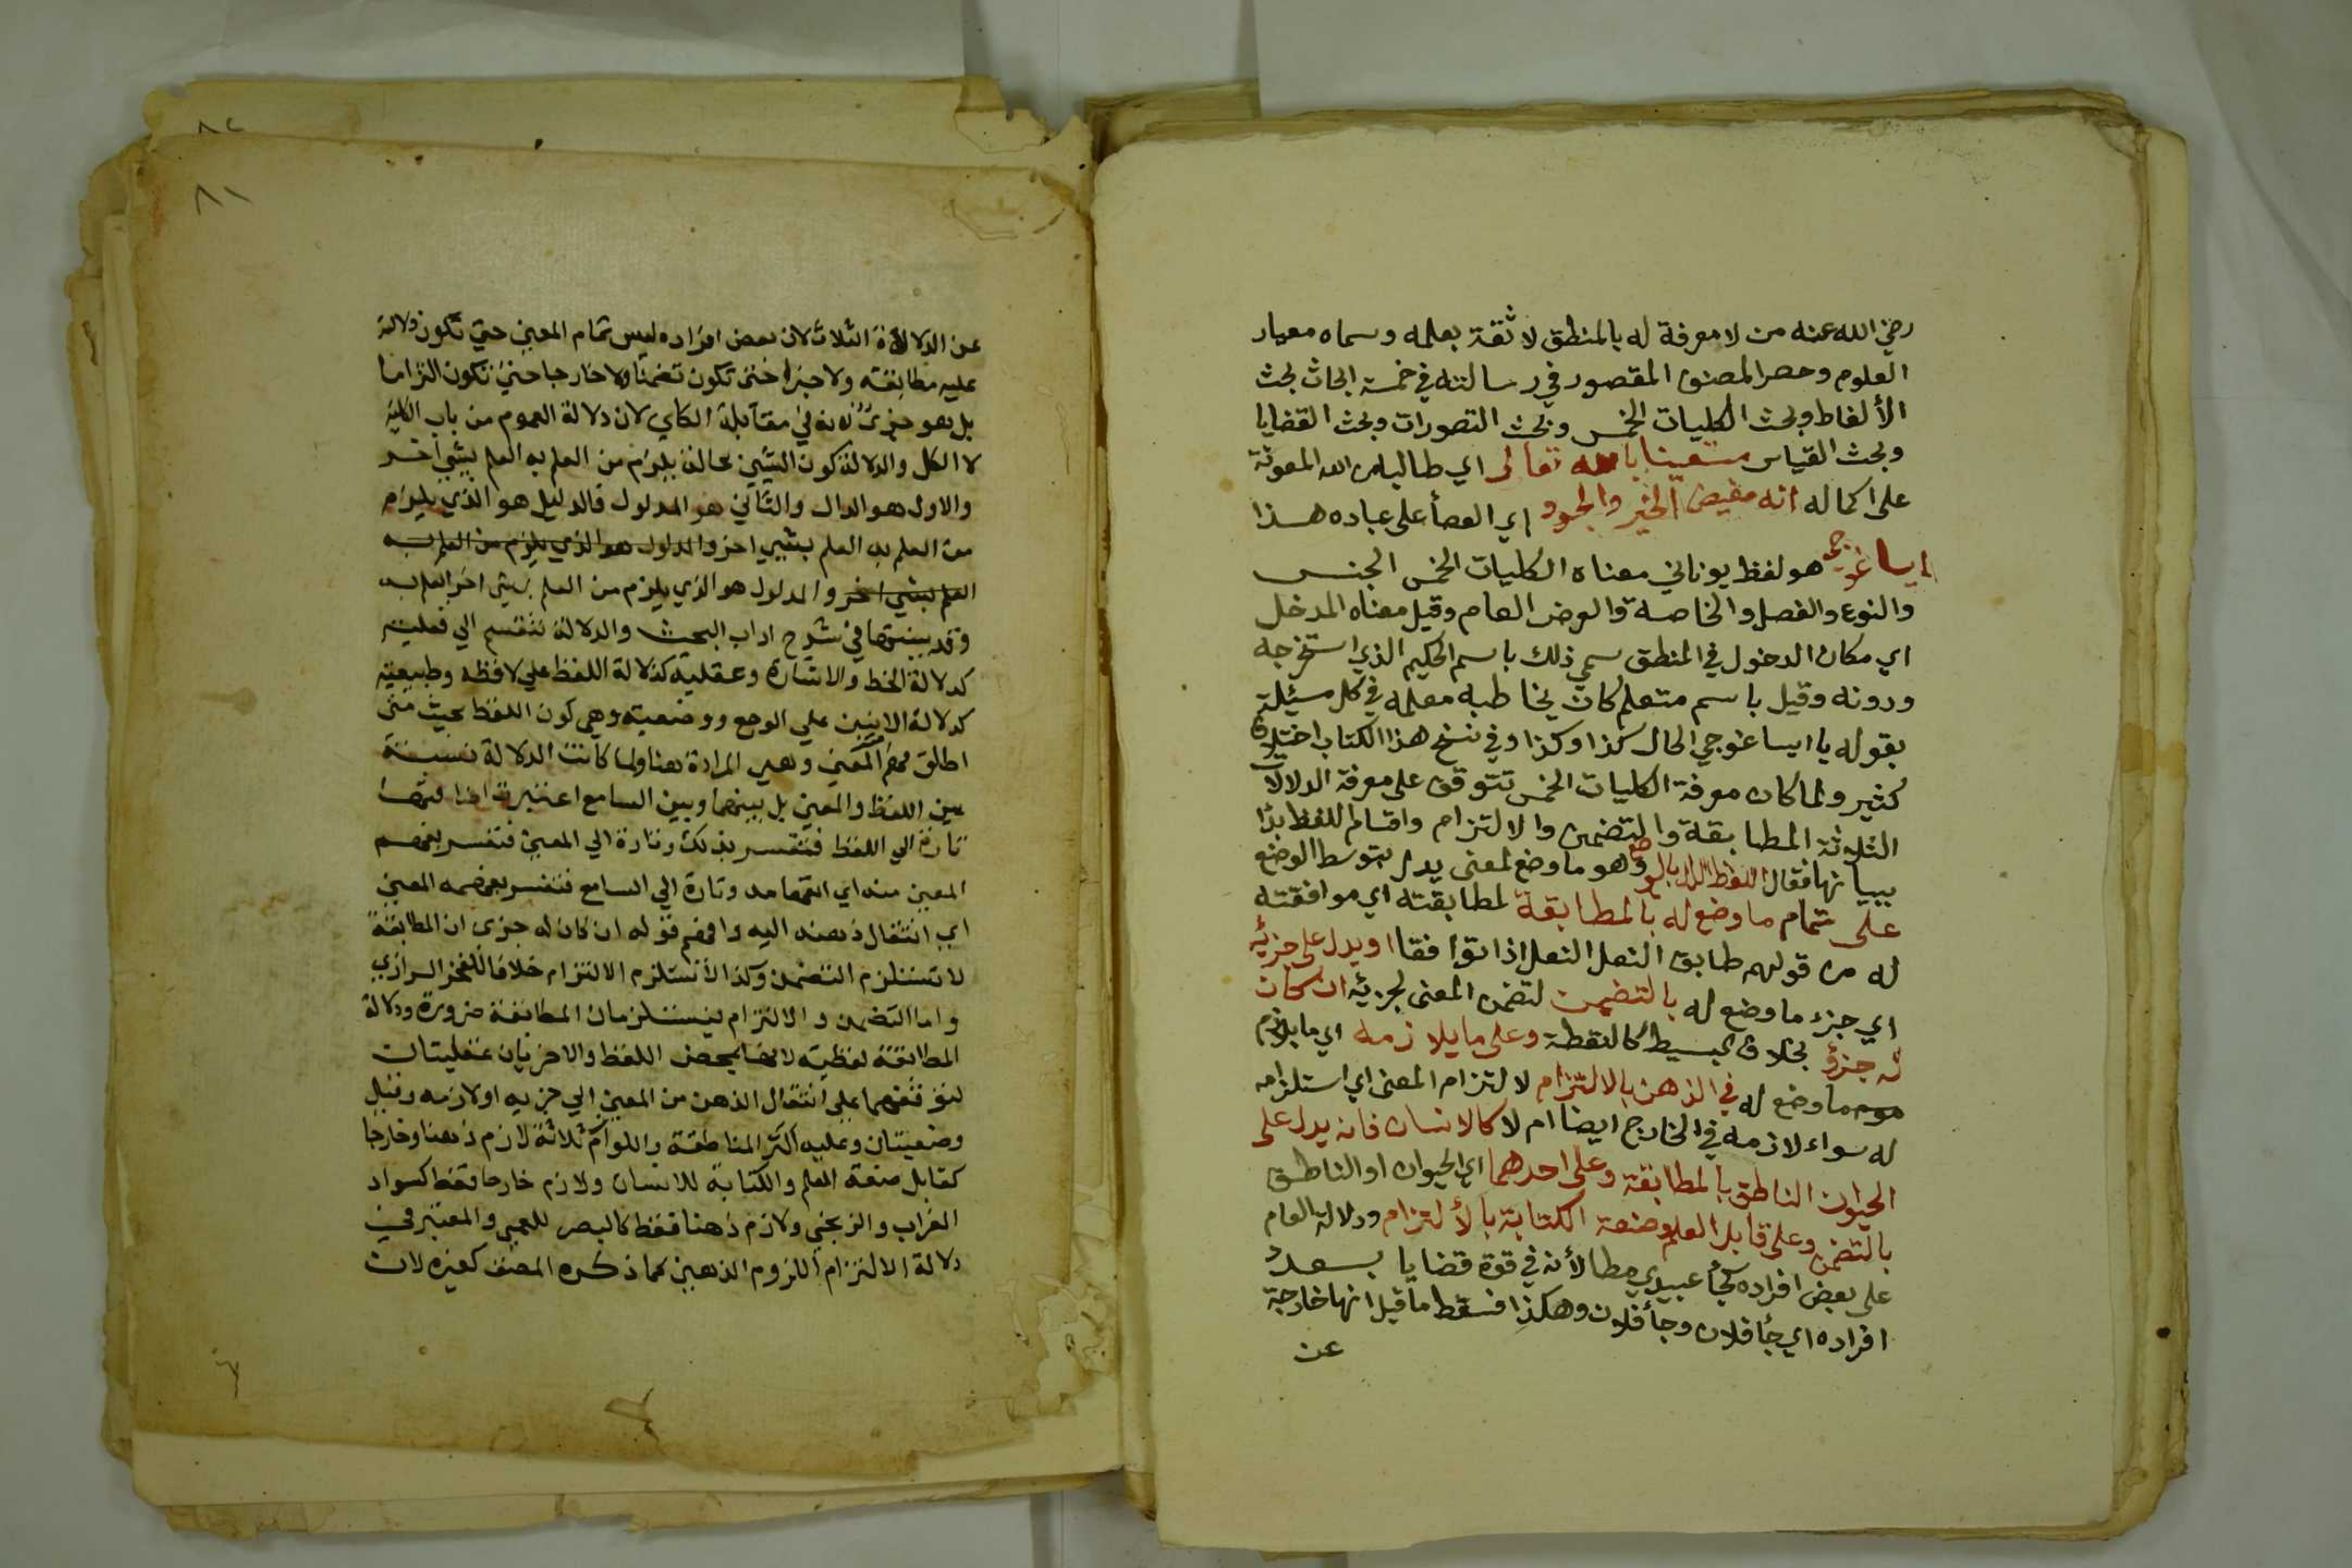 رضي الله عنه من لا معرفة له بالمنطق لا ثقة بعلمه وسماه معيار
العلوم وحصر المصنف المقصود في رسالته في خمسة ابحاث بحث
الألفاظ وبحث الكليات الخمس وبحث التصورات وبحث القضايا
وبحث القياس مستعينا بالله تعالى اي طالبا من الله المعونة
على اكماله انه مفيض الخير والجود اي العطأ على عباده هذا
ايساغوجى هو لفظ يوناني معناه الكليات الخمس الجنس
والنوع والفصل والخاصة والعرض العام وقيل معناه المدخل
اي مكان الدخول في المنطق سمي ذلك باسم الحكيم الذي استخرجه
ودونه وقيل باسم متعلم كان يخاطبه معلمه في كل مسئلة
بقوله يا ايساغوجي الحال كذا وكذا وفي نسخ هذا الكتاب اختلاف
كثير ولما كان معرفة الكليات الخمس تتوقف على معرفة الدلالات
الثلاثة المطابقة والتضمن والالتزام واقسام اللفظ بدا
ببيانها فقال اللفظ الدال بالوضع وهو ما وضع لمعنى يدل بتوسط الوضع
على تمام ما وضع له بالمطابقة لمطابقته اي موافقته
له من قولهم طابق النعل النعل اذا توافقا او يدل على جزئه
اي جزء ما وضع له بالتضمن لتضمن المعنى لجزئه ان كان
له جزؤ بخلاف البسيط كالنقطة وعلى ما يلازمه اي ما يلازم
ما وضع له في الذهن بالالتزام لالتزام المعنى اي استلزامه
له سواء لازمه في الخارج ايضا ام لا كالانسان فانه يدل على
الحيوان الناطق بالمطابقة وعلى احدهما اي الحيوان او الناطق
بالتضمن وعلى قابل العلم وصنعة الكتابة بالألتزام ودلالة العام
على بعض افراده كجأ عبيدي مطا لأنه في قوة قضايا بعدد
افراده اي جأ فلان وجأ فلان وهكذا فسقط ما قيل انها خارجة
عن
٨٢
٨١
عن الدلالة الثلاث لان بعض افراده ليس تمام المعني حتي تكون دلالته
عليه مطابقة ولا جزا حتي تكون تضمنا ولا خارجا حتي تكون التزاما
بل هو جزئ لانه في مقابلة الكلي لان دلالة العموم من باب الكلية
لا الكل والدلالة كون الشئ بحالة يلزم من العلم به العلم بشئ اخر
والاول هو الدال والثاني هو المدلول فالدليل هو الذي يلزم
من العلم به العلم بشئ اخر والمدلول هو الذي يلزم من العلم به
العلم بشي اخر والمدلول هو الذي يلزم من العلم بشئ اخر العلم به
وقد بينتها في شرح اداب البحث والدلالة تنقسم الي فعلية
كدلالة الخط والاشارة وعقلية كدلالة اللفظ علي لافظه وطبيعية
كدلالة الانين علي الوجع ووضعية وهي كون اللفظ بحيث متى
اطلق فهم المعني وهي المرادة هنا ولما كانت الدلالة نسبة
بين اللفظ والمعني بل بينهما وبين السامع اعتبرت اضافتها
تارة الي اللفظ فتفسر بذلك وتارة الي المعني فتفسر بفهم
المعني منه اي انفهامه وتارة الي السامع فتفسر بفهمه المعني
اي انتقال ذهنه اليه وافهم قوله ان كان له جزئ ان المطابقة
لا تستلزم التضمن وكذا لا تستلزم الالتزام خلافا للفخر الرازي
واما التضمن والالتزام فيستلزمان المطابقة ضرورة ودلالة
المطابقة لفظية لانها بمحض اللفظ والاخريان عقليتان
لتوقفهما علي انتقال الذهن من المعني الي جزئه او لازمه وقيل
وضعيتان وعليه اكثر المناطقة واللوازم ثلاثة لازم ذهنا وخارجا
كقابل صنعة العلم والكتابة للانسان ولازم خارجا فقط كسواد
الغراب والزنجي ولازم ذهنا فقط كالبصر للعمي والمعتبر في
دلالة الالتزام اللزوم الذهني كما ذكره المصنف كغيره لان